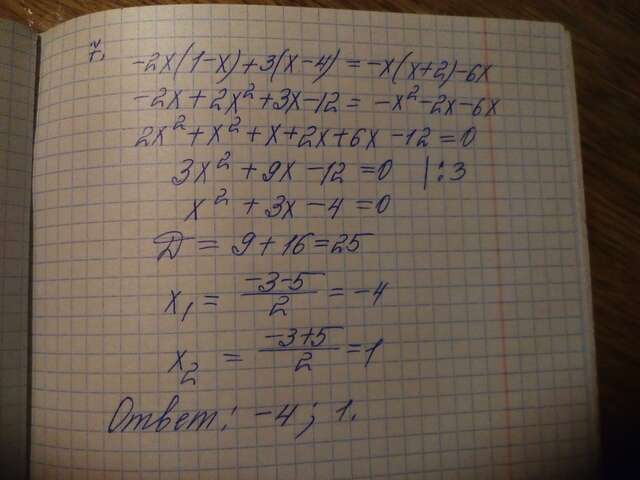 7.
-2x(1-x)+3(x-4)=-x(x+2)-6x
-2x+2x²+3x-12=-x²-2x-6x
2x²+x²+x+2x+6x-12=0
3x²+9x-12=0 |:3
x²+3x-4=0
D=9+16=25
x₁=(-3-5)/2=-4
x₂=(-3+5)/2=1
Ответ: -4; 1.